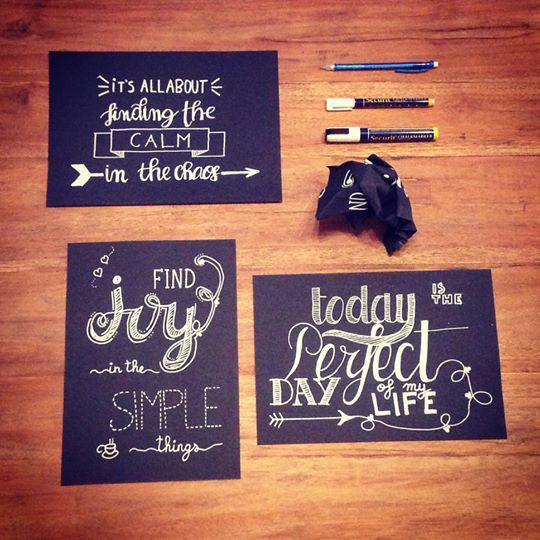 IT'S ALL ABOUT
finding the
CALM
in the chaos
Securit CHALKMARKER
Securit CHALKMARKER
ND
FIND
joy
in the
SIMPLE
things
today IS THE
Perfect
DAY of my
LIFE